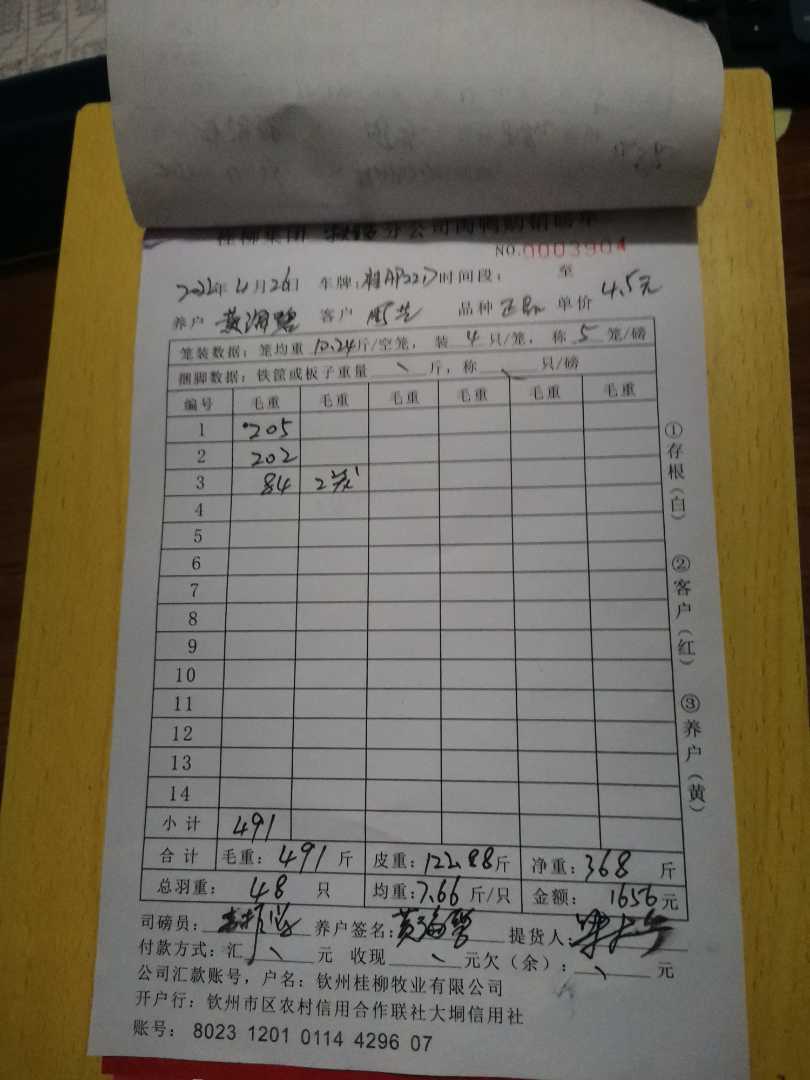 桂柳集团 分公司肉鸭购销磅单
NO.0003904
2022年4月26日 车牌: 时间段: 至
养户 黄海 客户 周芝 品种 正品 单价 4.5元
笼装数据: 笼均重 10.24斤/空笼, 装 4 只/笼, 称 5 笼/磅
捆脚数据: 铁筐或板子重量 \ 斤, 称 \ 只/磅
编号 毛重 毛重 毛重 毛重 毛重 毛重
1 205
2 202
3 84 2笼
4
5
6
7
8
9
10
11
12
13
14
小计 491
合计 毛重: 491 斤 皮重: 122.88斤 净重: 368 斤
总羽重: 48 只 均重: 7.66 斤/只 金额: 1656元
司磅员: 养户签名: 黄海 提货人:
付款方式: 汇 \ 元 收现 \ 元欠(余): \ 元
公司汇款账号, 户名: 钦州桂柳牧业有限公司
开户行: 钦州市区农村信用合作联社大垌信用社
账号: 8023 1201 0114 4296 07
①存根(白)
②客户(红)
③养户(黄)